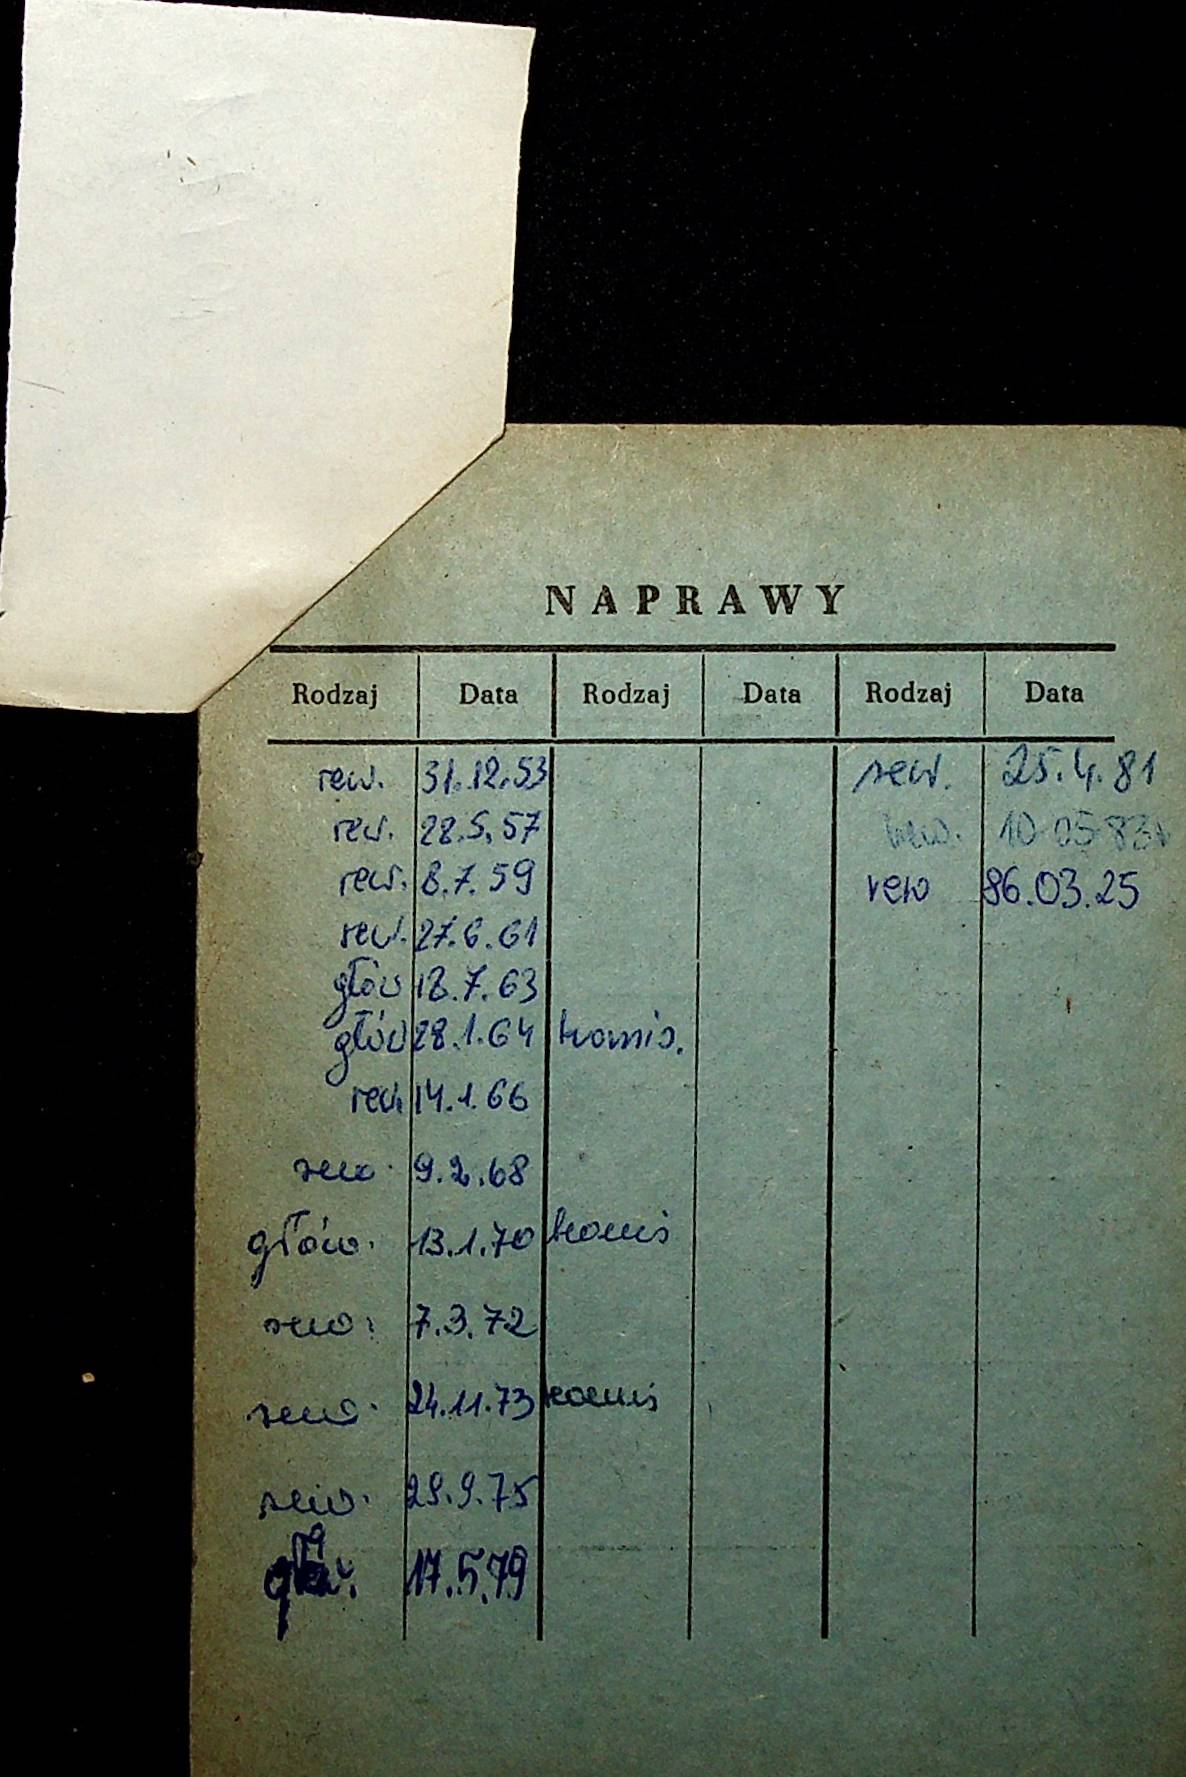 NAPRAWY
Rodzaj Data Rodzaj Data Rodzaj Data
rew. 31.12.53 rew. 25.4.81
rew. 28.5.57 rew. 10 05 83
rew. 8.7.59 rew 86.03.25
rew. 27.6.61
głów 18.7.63
głów 28.1.64 komis.
rew. 14.1.66
rew. 9.2.68
głów. 13.1.70 komis
rew. 7.3.72
rew. 24.11.73 komis
rew. 29.9.75
głów. 17.5.79